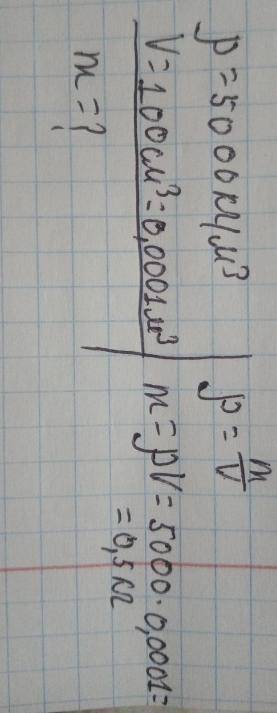 ρ = 5000 кг/м³
V = 100 см³ = 0,0001 м³
m = ?
ρ = m/V
m = ρV = 5000 · 0,0001 =
= 0,5 кг